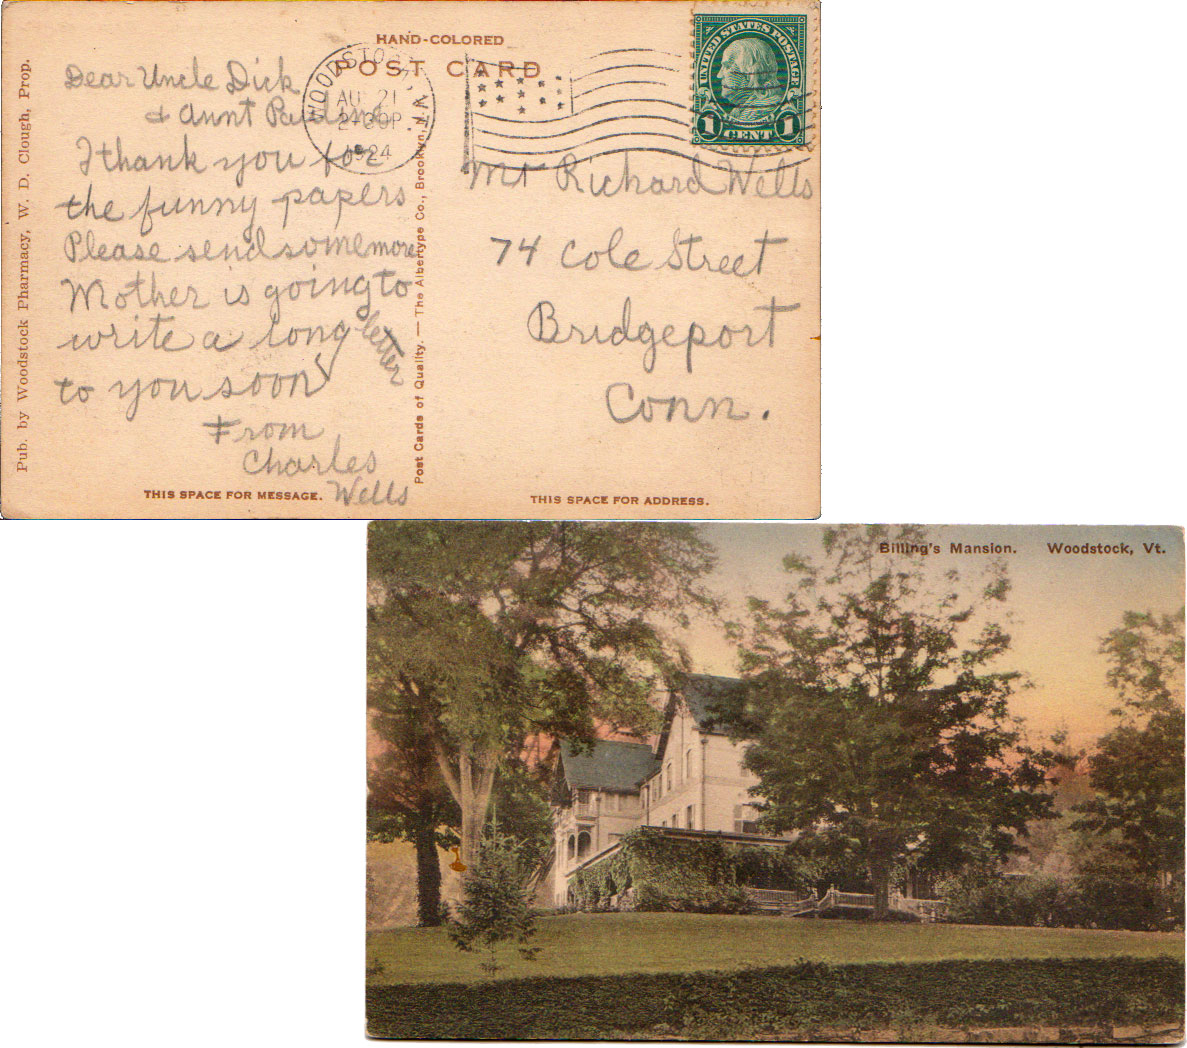 HAND-COLORED
POST CARD
WOODSTOCK, VT.
AUG 21
2-30P
1924
UNITED STATES POSTAGE
1 CENT 1
Dear Uncle Dick
& Aunt Pauline
I thank you for
the funny papers
Please send some more
Mother is going to
write a long letter
to you soon
From
Charles
Wells
Mr Richard Wells
74 Cole Street
Bridgeport
Conn.
Pub. by Woodstock Pharmacy, W. D. Clough, Prop.
Post Cards of Quality. — The Albertype Co., Brooklyn, N.Y.
THIS SPACE FOR MESSAGE.
THIS SPACE FOR ADDRESS.
Billing's Mansion. Woodstock, Vt.